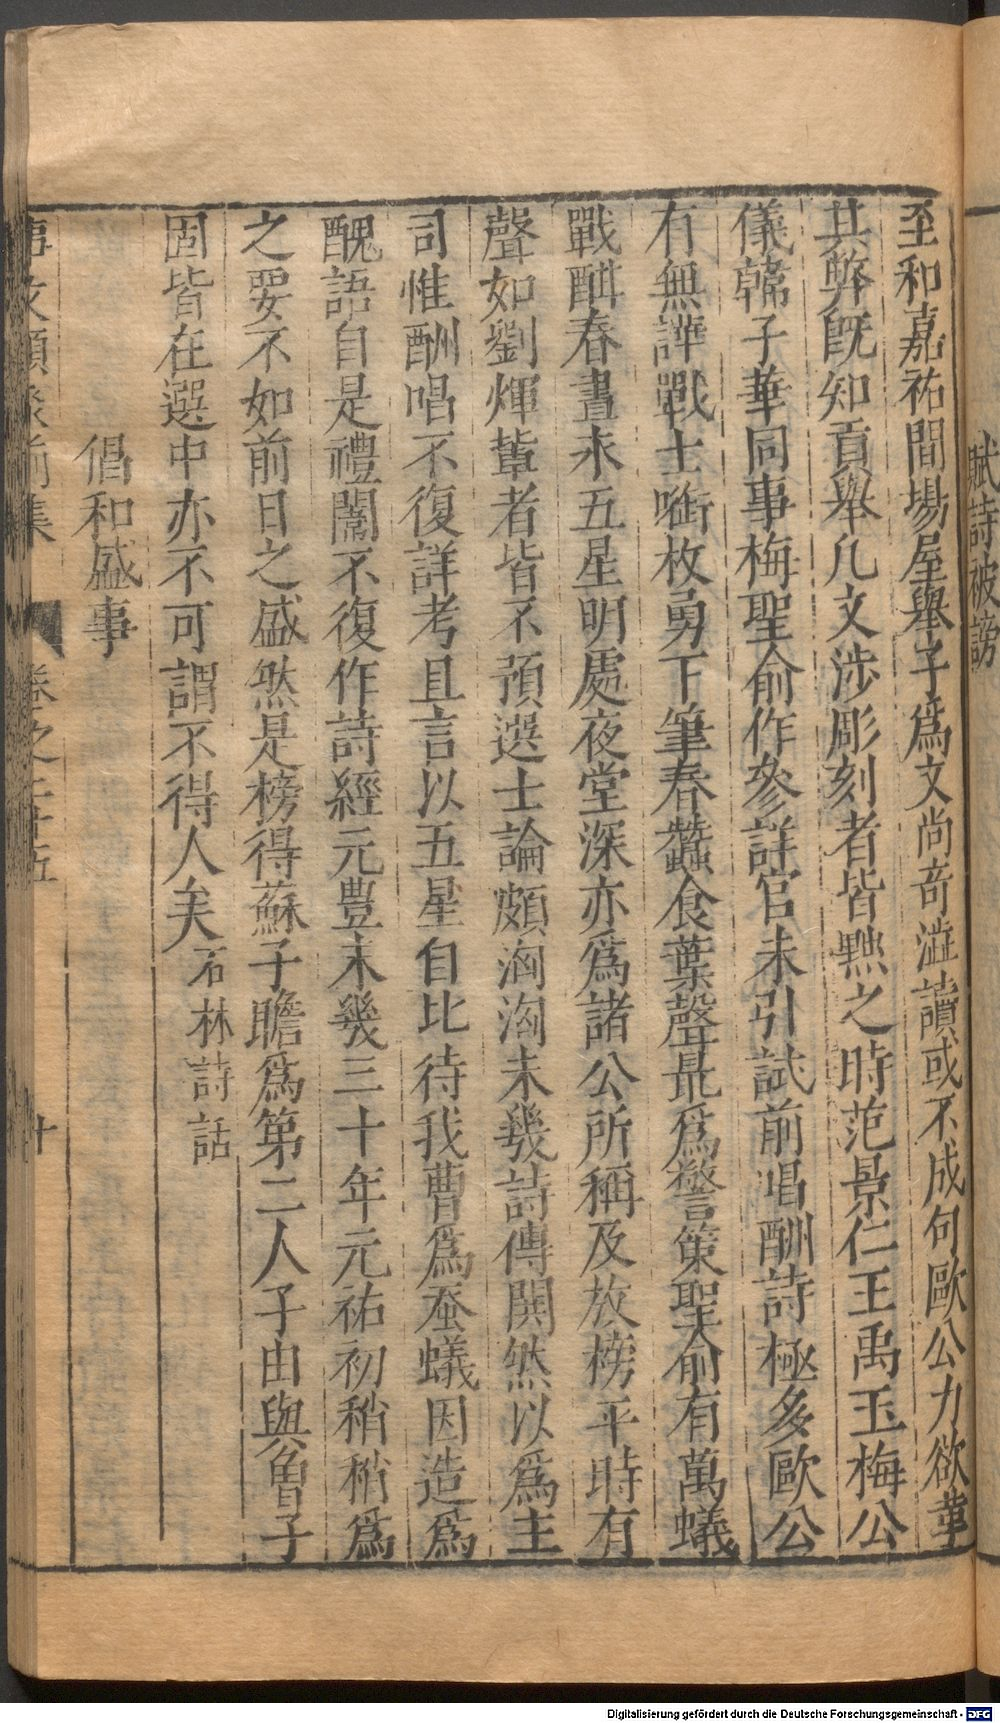 賦詩被謗
至和嘉祐間場屋舉子爲文尚奇澁讀或不成句歐公力欲革
其弊旣知貢舉凢文涉彫刻者皆黜之時范景仁王禹玉梅公
儀韓子華同事梅聖俞作參詳官未引試前唱酬詩極多歐公
有無譁戰士㗸枚勇下筆春蠶食葉聲最爲警策聖俞有萬蟻
戰酣春晝永五星明處夜堂深亦爲諸公所稱及放榜平時有
聲如劉煇輩者皆不預選士論頗洶洶未幾詩傳閧然以爲主
司惟酬唱不復詳考且言以五星自比待我曹爲蚕蟻因造爲
醜語自是禮闈不復作詩經元豊末幾三十年元祐初稍稍爲
之要不如前日之盛然是榜得蘇子瞻爲第二人子由與曾子
固皆在選中亦不可謂不得人矣石林詩話
倡和盛事
事文類聚前集 卷之二十五 十
Digitalisierung gefördert durch die Deutsche Forschungsgemeinschaft - DFG